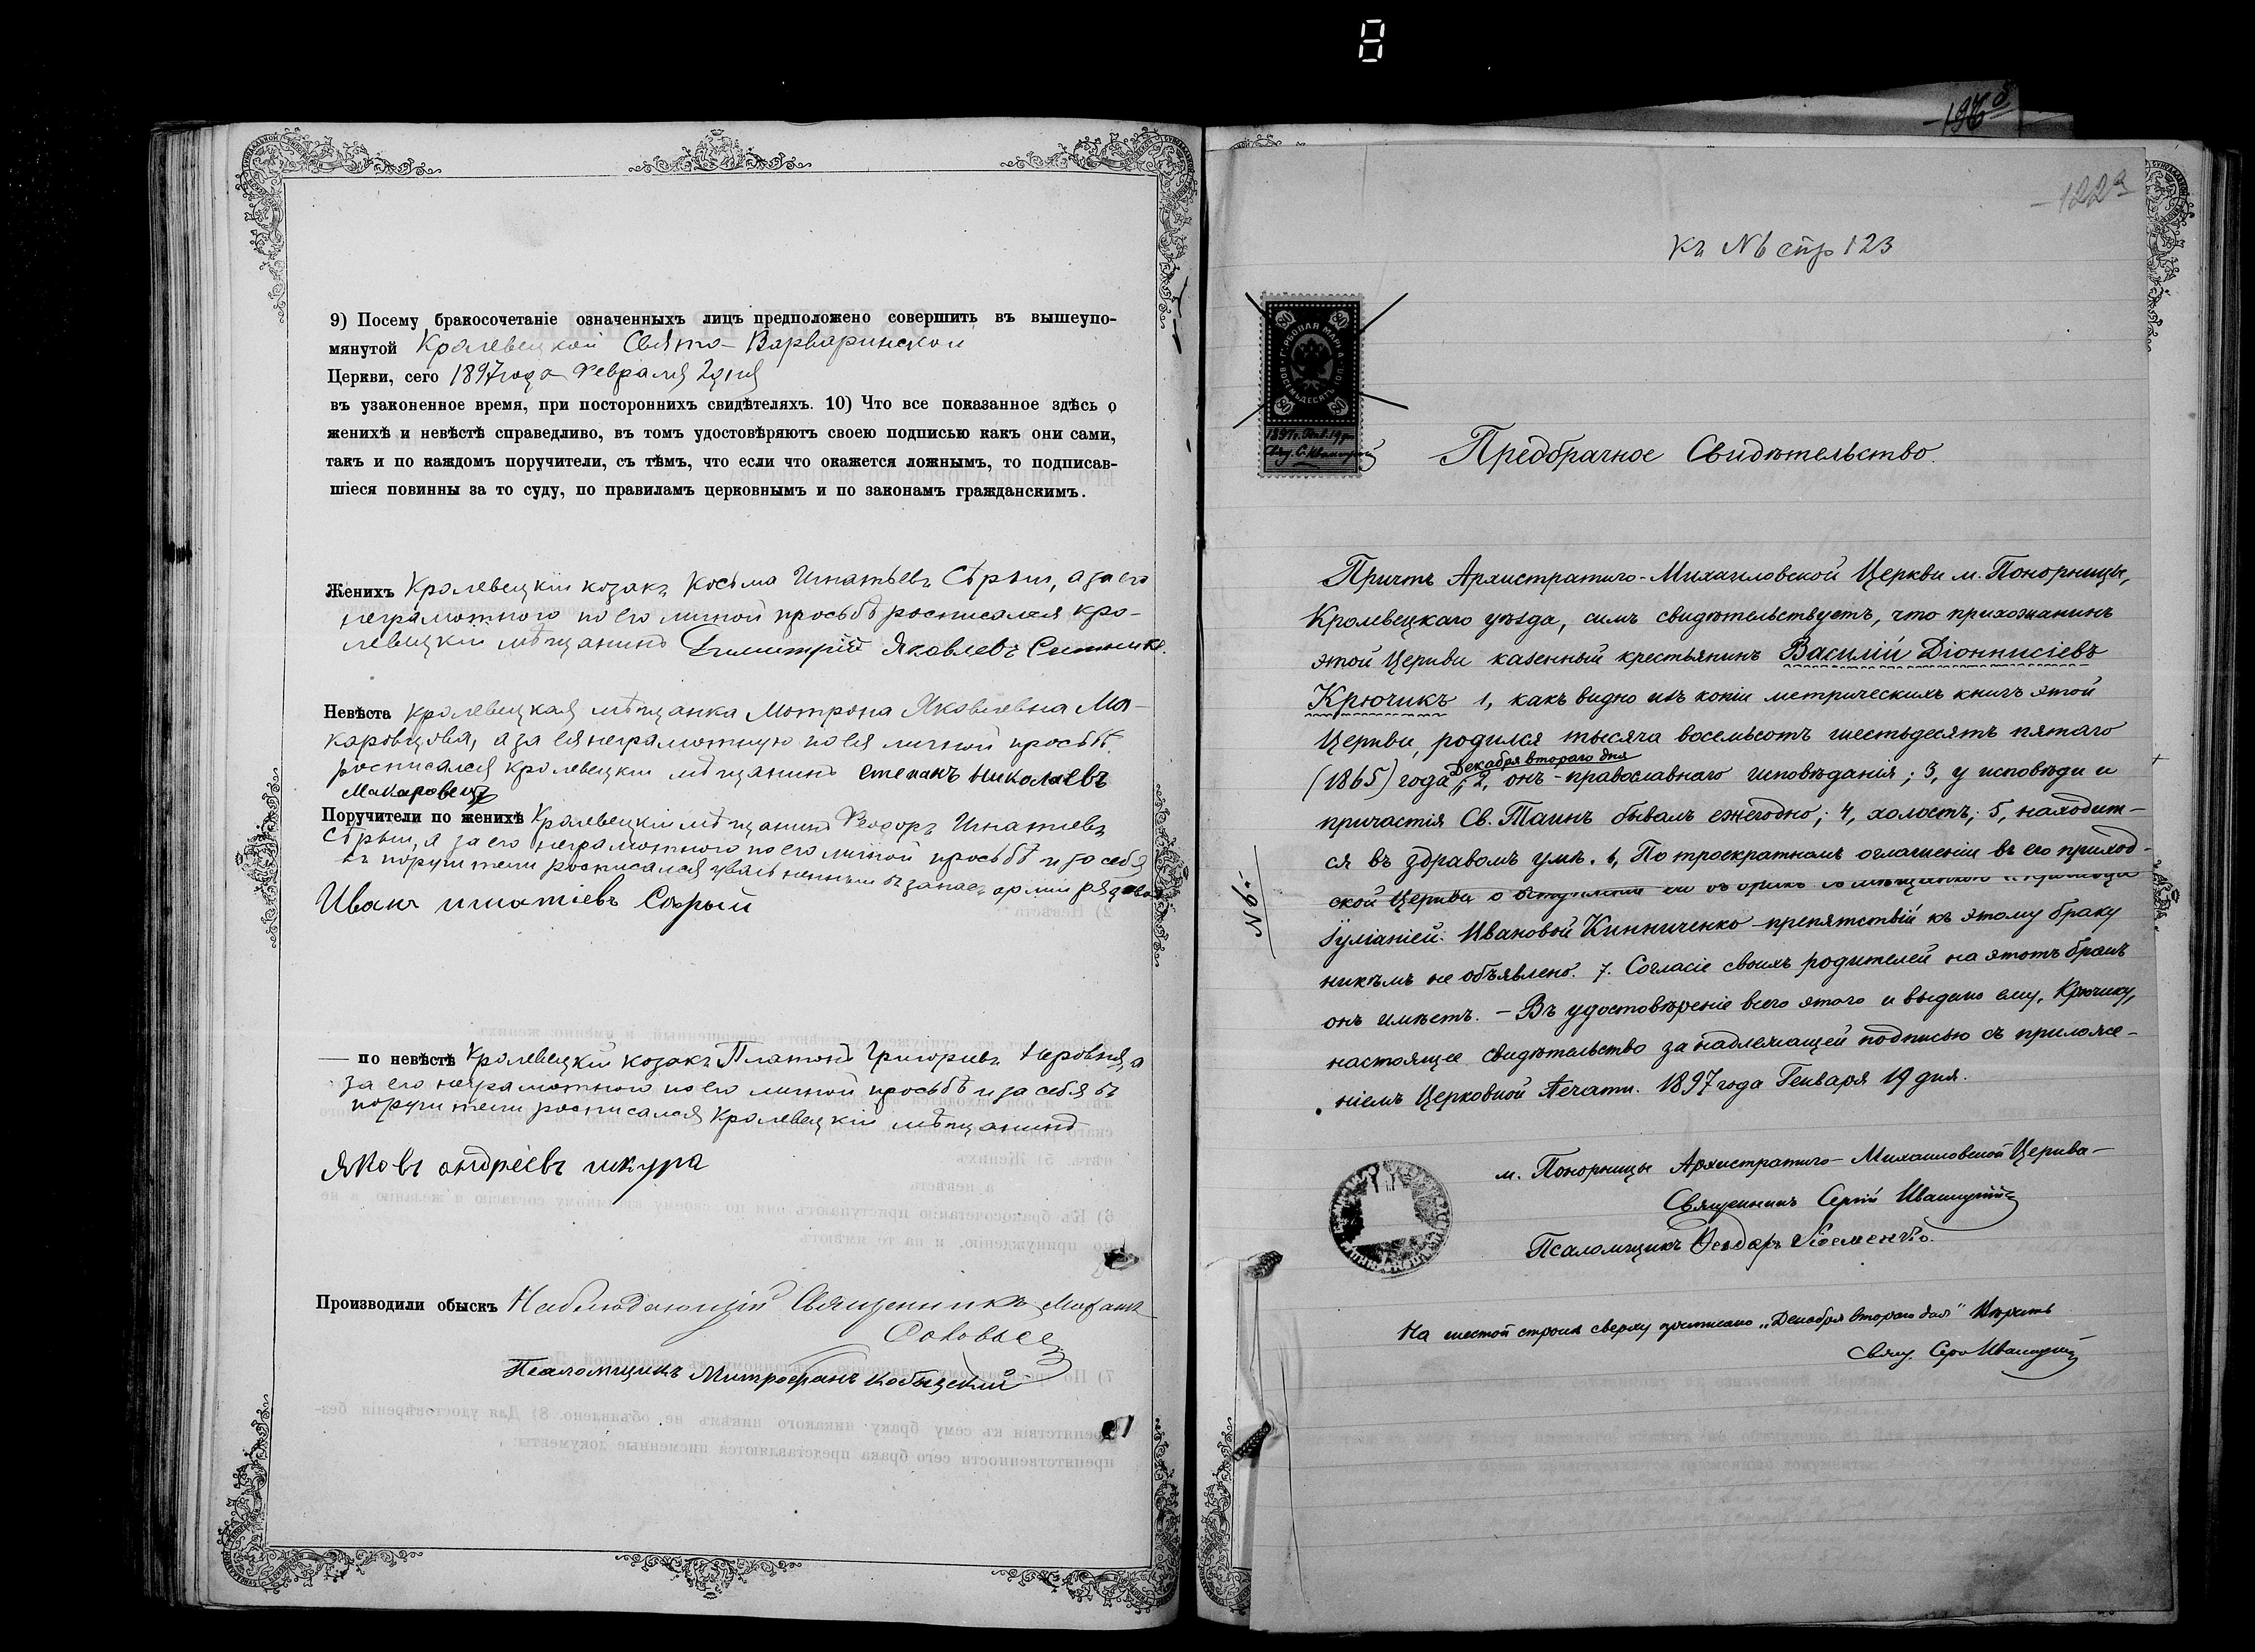 9) Посему бракосочетаніе означенныхъ лицъ предположено совершить въ вышеупо-
мянутой Кролевецкой Свято-Варваринской
Церкви, сего 1897 года Февраля 2 дня
въ узаконенное время, при постороннихъ свидѣтеляхъ. 10) Что все показанное здѣсь о
женихѣ и невѣстѣ справедливо, въ томъ удостовѣряютъ своею подписью какъ они сами,
такъ и по каждомъ поручители, съ тѣмъ, что если что окажется ложнымъ, то подписав-
шіеся повинны за то суду, по правиламъ церковнымъ и по законамъ гражданскимъ.
Женихъ Кролевецкій козакъ Косьма Игнатьевъ Сѣрый, а за его
неграмотного по его личной просьбѣ росписался кро-
левецкій мѣщанинъ Димитрій Яковлевъ
Невѣста Кролевецкая мѣщанка Мотрона Яковлевна Ма-
каровцова, а за ея неграмотную по ея личной просьбѣ
росписался кролевецкій мѣщанинъ степанъ николаевъ
Макаровецъ
Поручители по женихѣ Кролевецкій мѣщанинъ Феодоръ Игнатіевъ
Сѣрый, а за его неграмотного по его личной просьбѣ и за себя
въ поручители росписался уволенный въ запасъ арміи рядовой
Иванъ игнатіевъ Сѣрый
— по невѣстѣ Кролевецкій козакъ Платонъ Григорьевъ а
за его неграмотного по его личной просьбѣ и за себя въ
поручители росписался Кролевецкій мѣщанинъ
Яковъ андреевъ шкура
Производили обыскъ Наблюдающій Священникъ
Соловьев
Псаломщикъ Митрофанъ
-122а
Къ № стр 123
ГЕРБОВАЯ МАРКА
ВОСЕМЬДЕСЯТЪ КОП.
80
1897г. Янв. 19 дня
Предбрачное Свидѣтельство.
Причтъ Архистратиго-Михаиловской Церкви м. Понорницы,
Кролевецкаго уѣзда, симъ свидѣтельствуетъ, что прихожанинъ
этой Церкви казенный крестьянинъ Василій Діоннисіевъ
Крючикъ 1, какъ видно изъ копіи метрическихъ книгъ этой
Церкви, родился тысяча восемьсотъ шестьдесятъ пятаго
Декабря второго дня
(1865) года; 2, онъ - православнаго исповѣданія; 3, у исповѣди и
причастія Св. Таинъ бывалъ ежегодно; 4, холостъ; 5, находит-
ся въ здравомъ умѣ. 6, По троекратномъ оглашеніи въ его приход-
ской Церкви о вступленіи
Іуліаніей Ивановой Кинниченко препятствій къ этому браку
никѣмъ не объявлено. 7. Согласіе своихъ родителей на этотъ бракъ
онъ имѣетъ. - Въ удостовѣреніе всего этого и выдано ему, Крючику,
настоящее свидѣтельство за надлежащей подписью съ приложе-
ніемъ Церковной Печати. 1897 года Генваря 19 дня.
№ 6.
м. Понорницы Архистратиго-Михаиловской Церкви-
Священникъ Сергій Иваницкій
Псаломщикъ Феодоръ
На шестой строкѣ сверху приписано „Декабря второго дня" Вѣрить
Свящ. Сер Иваницкій